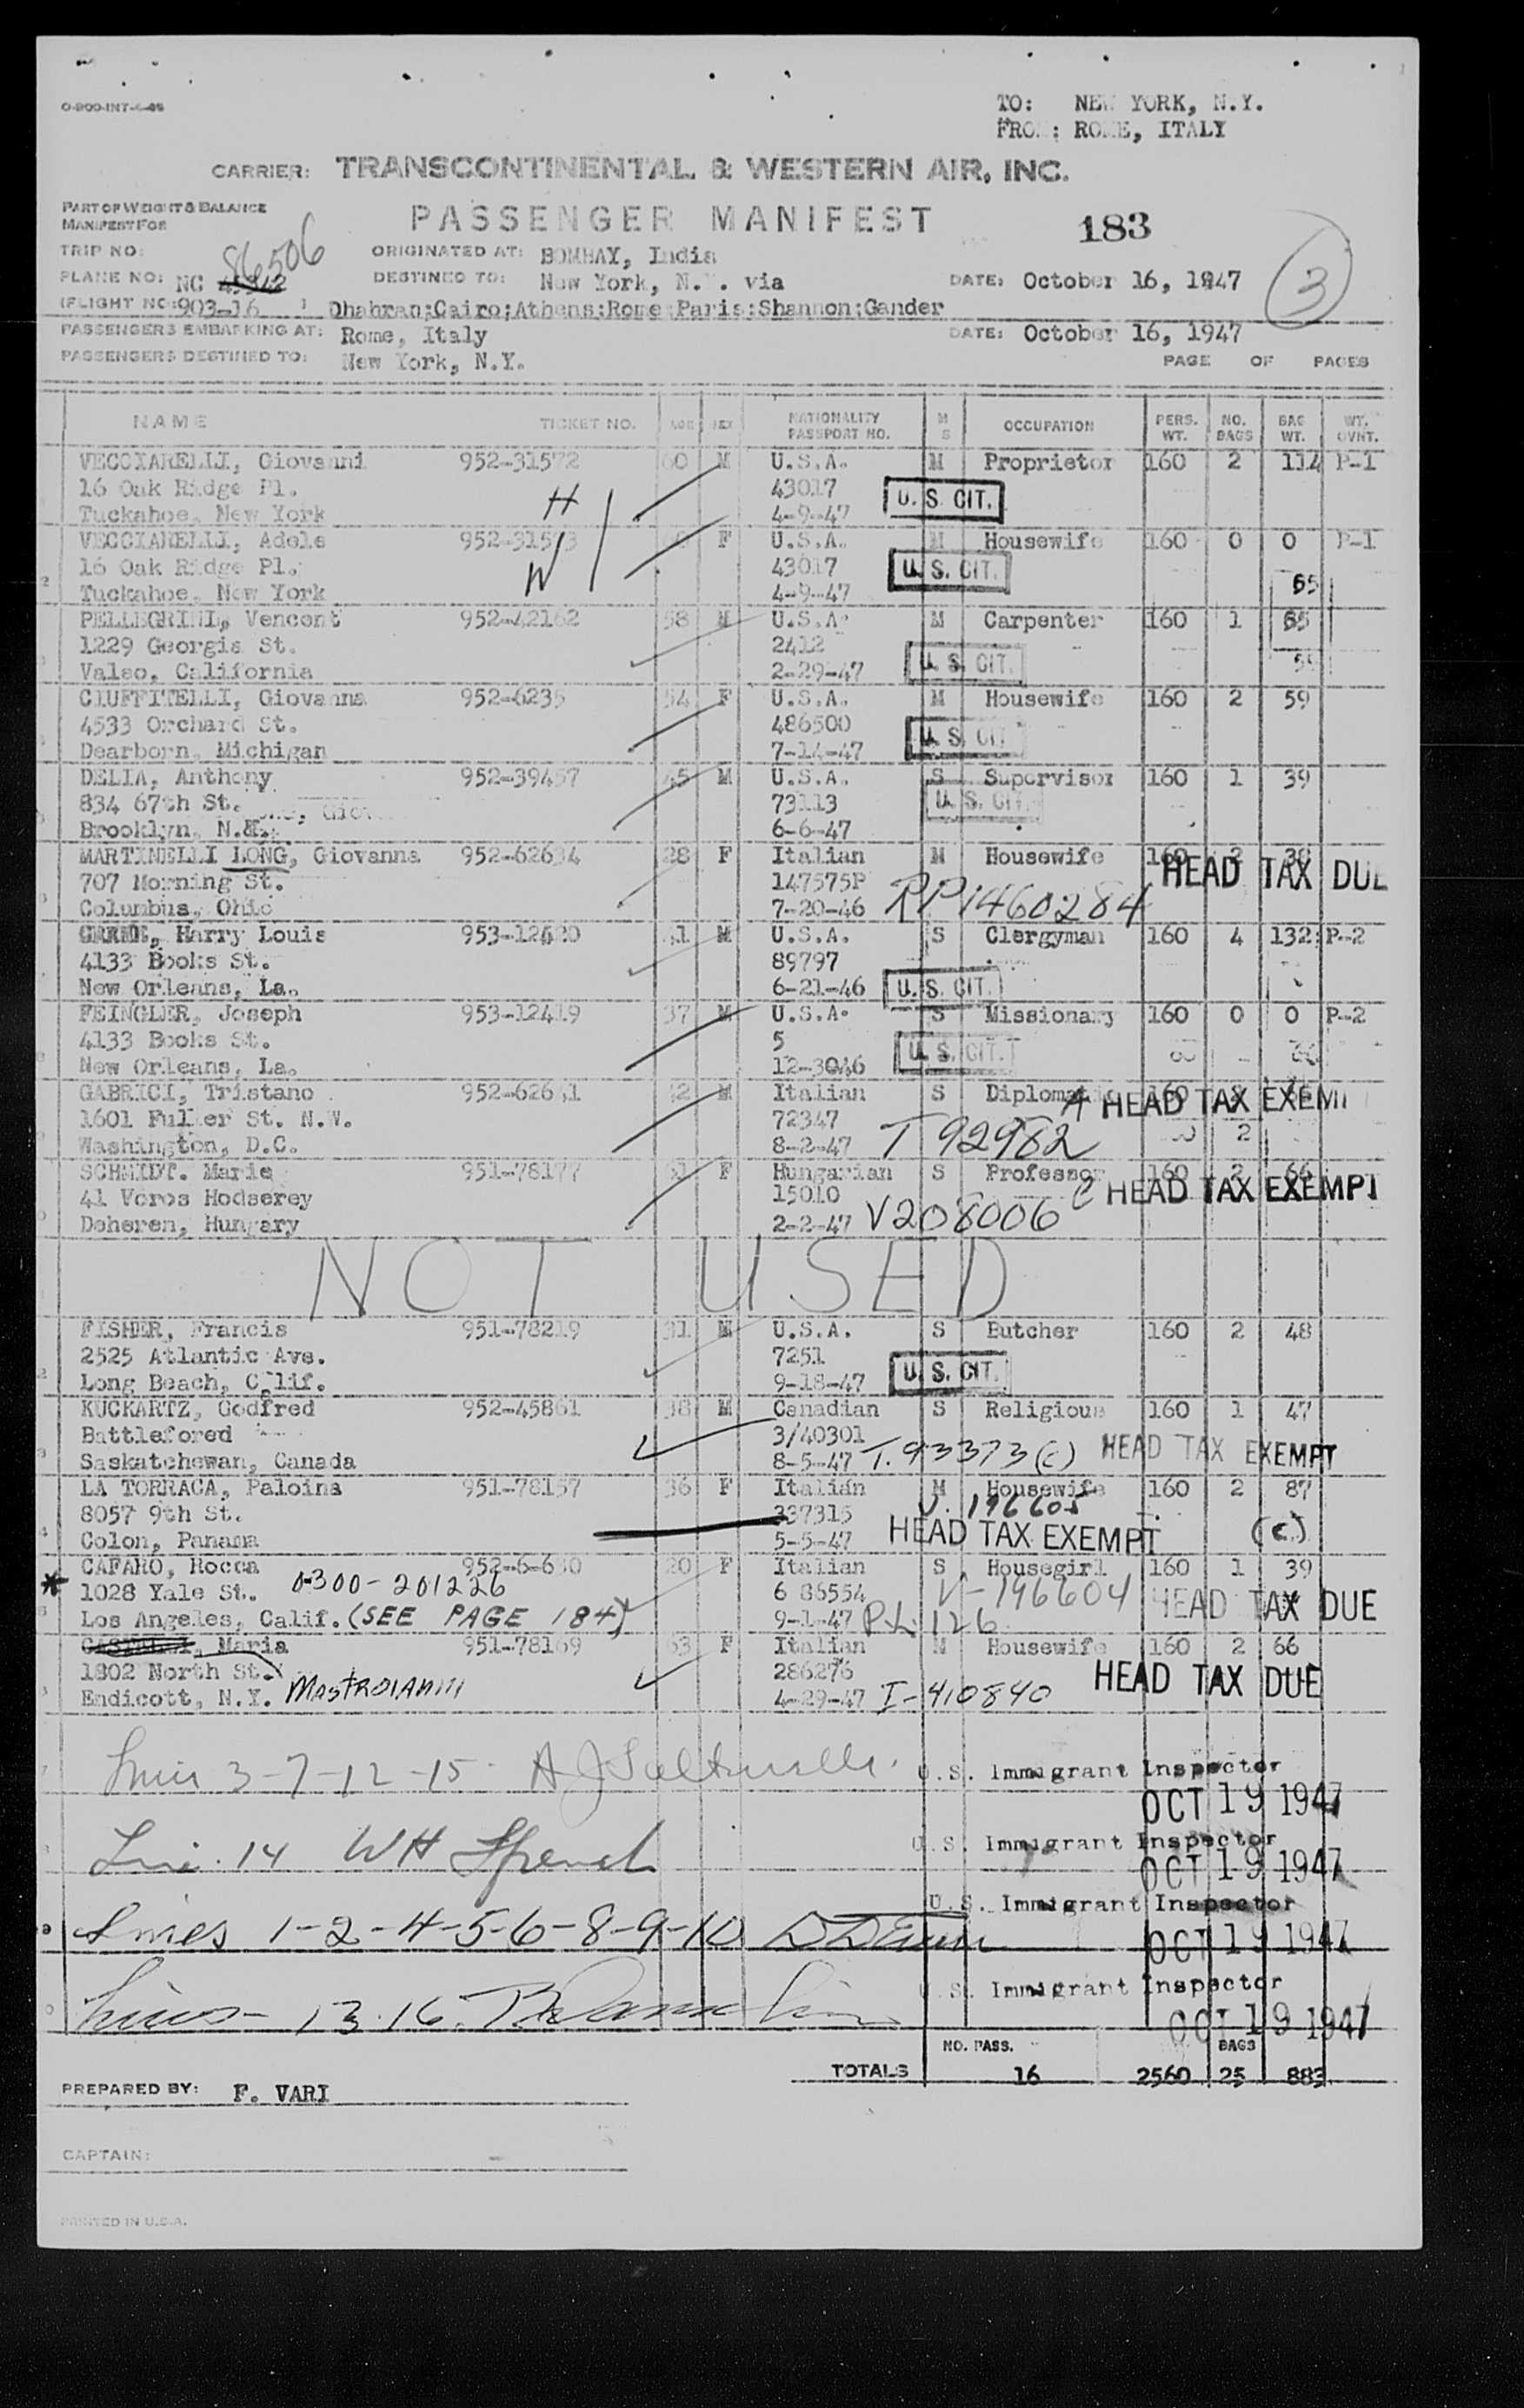 O-900-INT-4-46
TO: NEW YORK, N.Y.
FROM: ROME, ITALY
CARRIER: TRANSCONTINENTAL & WESTERN AIR, INC.
PART OF WEIGHT & BALANCE
MANIFEST FOR
PASSENGER MANIFEST
183
TRIP NO:
86506
ORIGINATED AT: BOMBAY, India
PLANE NO: NC
DESTINED TO: New York, N.Y. via
DATE: October 16, 1947
3
(FLIGHT NO: 903-16 ) Dhahran;Cairo;Athens;Rome;Paris;Shannon;Gander
PASSENGERS EMBARKING AT: Rome, Italy
DATE: October 16, 1947
PASSENGERS DESTINED TO: New York, N.Y.
PAGE OF PAGES
NAME TICKET NO. AGE SEX NATIONALITY PASSPORT NO. M S OCCUPATION PERS. WT. NO. BAGS BAG WT. WT. OVHT.
VECCIARELLI, Giovanni 952-31572 60 M U.S.A. M Proprietor 160 2 114 P-1
16 Oak Ridge Pl. H 43017 U. S. CIT.
Tuckahoe, New York 4-9-47
VECCIARELLI, Adele F U.S.A. M Housewife 160 0 0 P-1
16 Oak Ridge Pl. W 43017 U. S. CIT.
Tuckahoe, New York 4-9-47 65
PELLEGRINI, Vencent 952-42162 58 M U.S.A. M Carpenter 160 1
1229 Georgia St. 2412
Valeo, California 2-29-47 U. S. CIT.
CIUFFITELLI, Giovanna 952-6235 54 F U.S.A. M Housewife 160 2 59
4533 Orchard St. 486500 U. S. CIT.
Dearborn, Michigan 7-14-47
DELIA, Anthony 952-39457 45 M U.S.A. S Supervisor 160 1 39
834 67th St. 73113 U. S. CIT.
Brooklyn, N.Y. 6-6-47
MARTINELLI LONG, Giovanna 952-62634 28 F Italian M Housewife 160 2 38
HEAD TAX DUE
707 Morning St. 147575P RP1460284
Columbus, Ohio 7-20-46
Harry Louis 953-12420 41 M U.S.A. S Clergyman 160 4 132 P-2
4133 Books St. 89797
New Orleans, La. 6-21-46 U. S. CIT.
FEINGLER, Joseph 953-12419 37 M U.S.A. S Missionary 160 0 0 P-2
4133 Books St. 5 U. S. CIT.
New Orleans, La. 12-3046
GABRICI, Tristano M Italian S Diplomatic 160
A HEAD TAX EXEMPT
1601 Fuller St. N.W. 72347 T 92982 2
Washington, D.C. 8-2-47
SCHMIDT. Marie 951-78177 F Hungarian S Professor 160 2 66
41 Voros Hodserey 15010 C HEAD TAX EXEMPT
Deheren, Hungary 2-2-47 V208006
NOT USED
FISHER, Francis 951-78219 31 M U.S.A. S Butcher 160 2 48
2525 Atlantic Ave. 7251 U. S. CIT.
Long Beach, Calif. 9-18-47
KUCKARTZ, Godfred 952-45861 38 M Canadian S Religious 160 1 47
Battlefored 3/40301
Saskatchewan, Canada 8-5-47 T.93373(c) HEAD TAX EXEMPT
LA TORRACA, Paloina 951-78157 36 F Italian M Housewife 160 2 87
8057 9th St. 337315 V. 196605
Colon, Panama 5-5-47 HEAD TAX EXEMPT (c)
CAFARO, Rocca 20 F Italian S Housegirl 160 1 39
* 1028 Yale St. 0-300-201226 6 86554 V-196604 HEAD TAX DUE
Los Angeles, Calif. (SEE PAGE 184) 9-1-47 P.L. 126
Maria 951-78169 63 F Italian M Housewife 160 2 66
1802 North St. 286276 HEAD TAX DUE
Endicott, N.Y. MASTROIANNI 4-29-47 I-410840
Lines 3-7-12-15 U.S. Immigrant Inspector
OCT 19 1947
Line 14 WH French U.S. Immigrant Inspector
OCT 19 1947
Lines 1-2-4-5-6-8-9-10 U.S. Immigrant Inspector
OCT 19 1947
Lines 13-16 U.S. Immigrant Inspector
OCT 19 1947
NO. PASS. BAGS
TOTALS 16 2560 25 883
PREPARED BY: F. VARI
CAPTAIN:
PRINTED IN U.S.A.